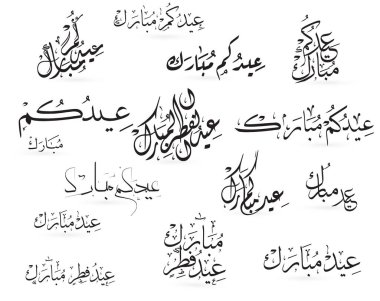 عيدكم مبارك
عيدكم مبارك
عيدكم مبارك
عيدكم مبارك
عيدكم
مبارك
عيد الفطر المبارك
عيدكم مبارك
عيدكم مبارك
عيدكم مبارك
عيد مبارك
عيد مبارك
مبارك
عيد فطر
عيد مبارك
عيد فطر مبارك